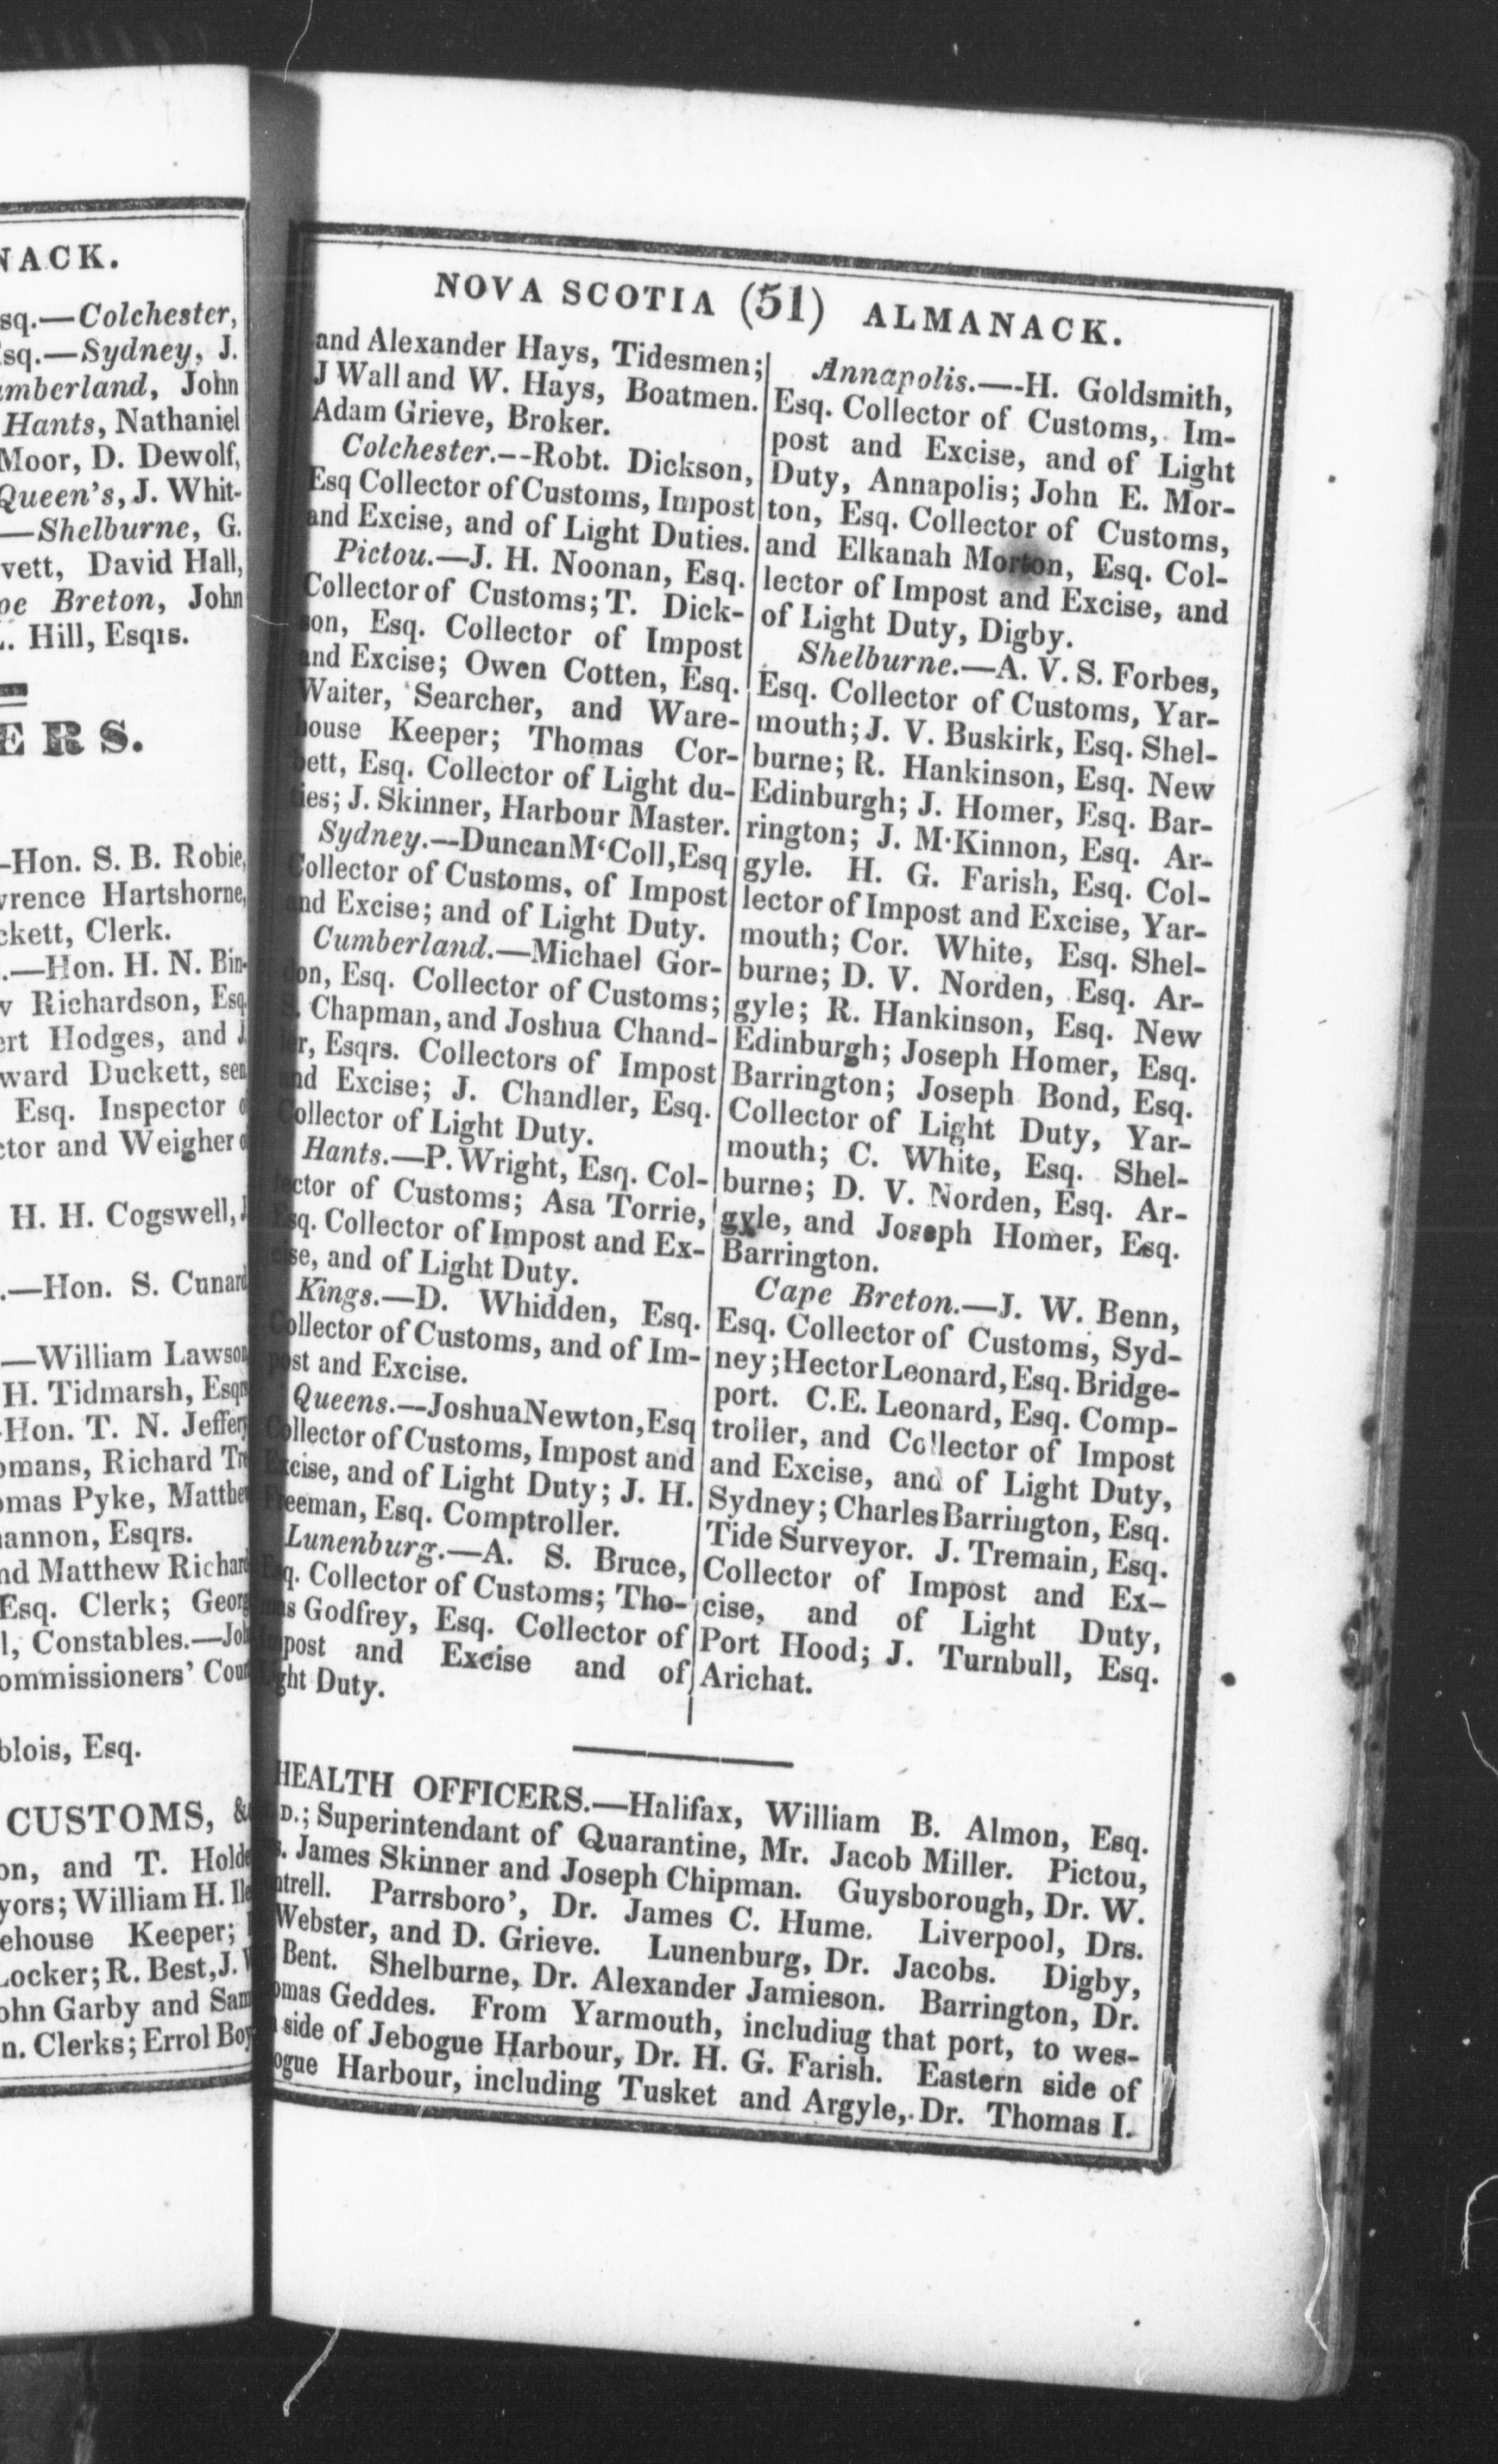 NACK.
sq.—Colchester,
sq.—Sydney, J.
mberland, John
Hants, Nathaniel
Moor, D. Dewolf,
Queen's, J. Whit-
—Shelburne, G.
vett, David Hall,
pe Breton, John
L. Hill, Esqrs.
ERS.
—Hon. S. B. Robie,
wrence Hartshorne,
ckett, Clerk.
.—Hon. H. N. Bin-
w Richardson, Esq
ert Hodges, and J
ward Duckett, sen
Esq. Inspector o
ctor and Weigher o
H. H. Cogswell, J
.—Hon. S. Cunard
—William Lawson
H. Tidmarsh, Esqrs
-Hon. T. N. Jeffery
omans, Richard Tre
omas Pyke, Matthew
hannon, Esqrs.
nd Matthew Richard
Esq. Clerk; Georg
l, Constables.—Joh
ommissioners' Court
blois, Esq.
CUSTOMS, &
on, and T. Holde
yors; William H. Ile
ehouse Keeper;
Locker; R. Best, J. W
ohn Garby and Sam
n. Clerks; Errol Boy
NOVA SCOTIA (51) ALMANACK.
and Alexander Hays, Tidesmen;
J Wall and W. Hays, Boatmen.
Adam Grieve, Broker.
Colchester.--Robt. Dickson,
Esq Collector of Customs, Impost
and Excise, and of Light Duties.
Pictou.—J. H. Noonan, Esq.
Collector of Customs; T. Dick-
son, Esq. Collector of Impost
and Excise; Owen Cotten, Esq.
Waiter, Searcher, and Ware-
house Keeper; Thomas Cor-
bett, Esq. Collector of Light du-
ties; J. Skinner, Harbour Master.
Sydney.—Duncan M‘Coll, Esq
Collector of Customs, of Impost
and Excise; and of Light Duty.
Cumberland.—Michael Gor-
don, Esq. Collector of Customs;
S. Chapman, and Joshua Chand-
ler, Esqrs. Collectors of Impost
and Excise; J. Chandler, Esq.
Collector of Light Duty.
Hants.—P. Wright, Esq. Col-
lector of Customs; Asa Torrie,
Esq. Collector of Impost and Ex-
cise, and of Light Duty.
Kings.—D. Whidden, Esq.
Collector of Customs, and of Im-
post and Excise.
Queens.—Joshua Newton, Esq
Collector of Customs, Impost and
Excise, and of Light Duty; J. H.
Freeman, Esq. Comptroller.
Lunenburg.—A. S. Bruce,
Esq. Collector of Customs; Tho-
mas Godfrey, Esq. Collector of
Impost and Excise and of
Light Duty.
Annapolis.—-H. Goldsmith,
Esq. Collector of Customs, Im-
post and Excise, and of Light
Duty, Annapolis; John E. Mor-
ton, Esq. Collector of Customs,
and Elkanah Morton, Esq. Col-
lector of Impost and Excise, and
of Light Duty, Digby.
Shelburne.—A. V. S. Forbes,
Esq. Collector of Customs, Yar-
mouth; J. V. Buskirk, Esq. Shel-
burne; R. Hankinson, Esq. New
Edinburgh; J. Homer, Esq. Bar-
rington; J. M·Kinnon, Esq. Ar-
gyle. H. G. Farish, Esq. Col-
lector of Impost and Excise, Yar-
mouth; Cor. White, Esq. Shel-
burne; D. V. Norden, Esq. Ar-
gyle; R. Hankinson, Esq. New
Edinburgh; Joseph Homer, Esq.
Barrington; Joseph Bond, Esq.
Collector of Light Duty, Yar-
mouth; C. White, Esq. Shel-
burne; D. V. Norden, Esq. Ar-
gyle, and Joseph Homer, Esq.
Barrington.
Cape Breton.—J. W. Benn,
Esq. Collector of Customs, Syd-
ney; Hector Leonard, Esq. Bridge-
port. C. E. Leonard, Esq. Comp-
troller, and Collector of Impost
and Excise, and of Light Duty,
Sydney; Charles Barrington, Esq.
Tide Surveyor. J. Tremain, Esq.
Collector of Impost and Ex-
cise, and of Light Duty,
Port Hood; J. Turnbull, Esq.
Arichat.
HEALTH OFFICERS.—Halifax, William B. Almon, Esq.
D.; Superintendant of Quarantine, Mr. Jacob Miller. Pictou,
s. James Skinner and Joseph Chipman. Guysborough, Dr. W.
ntrell. Parrsboro', Dr. James C. Hume. Liverpool, Drs.
Webster, and D. Grieve. Lunenburg, Dr. Jacobs. Digby,
Bent. Shelburne, Dr. Alexander Jamieson. Barrington, Dr.
omas Geddes. From Yarmouth, includiug that port, to wes-
n side of Jebogue Harbour, Dr. H. G. Farish. Eastern side of
ogue Harbour, including Tusket and Argyle, Dr. Thomas I.